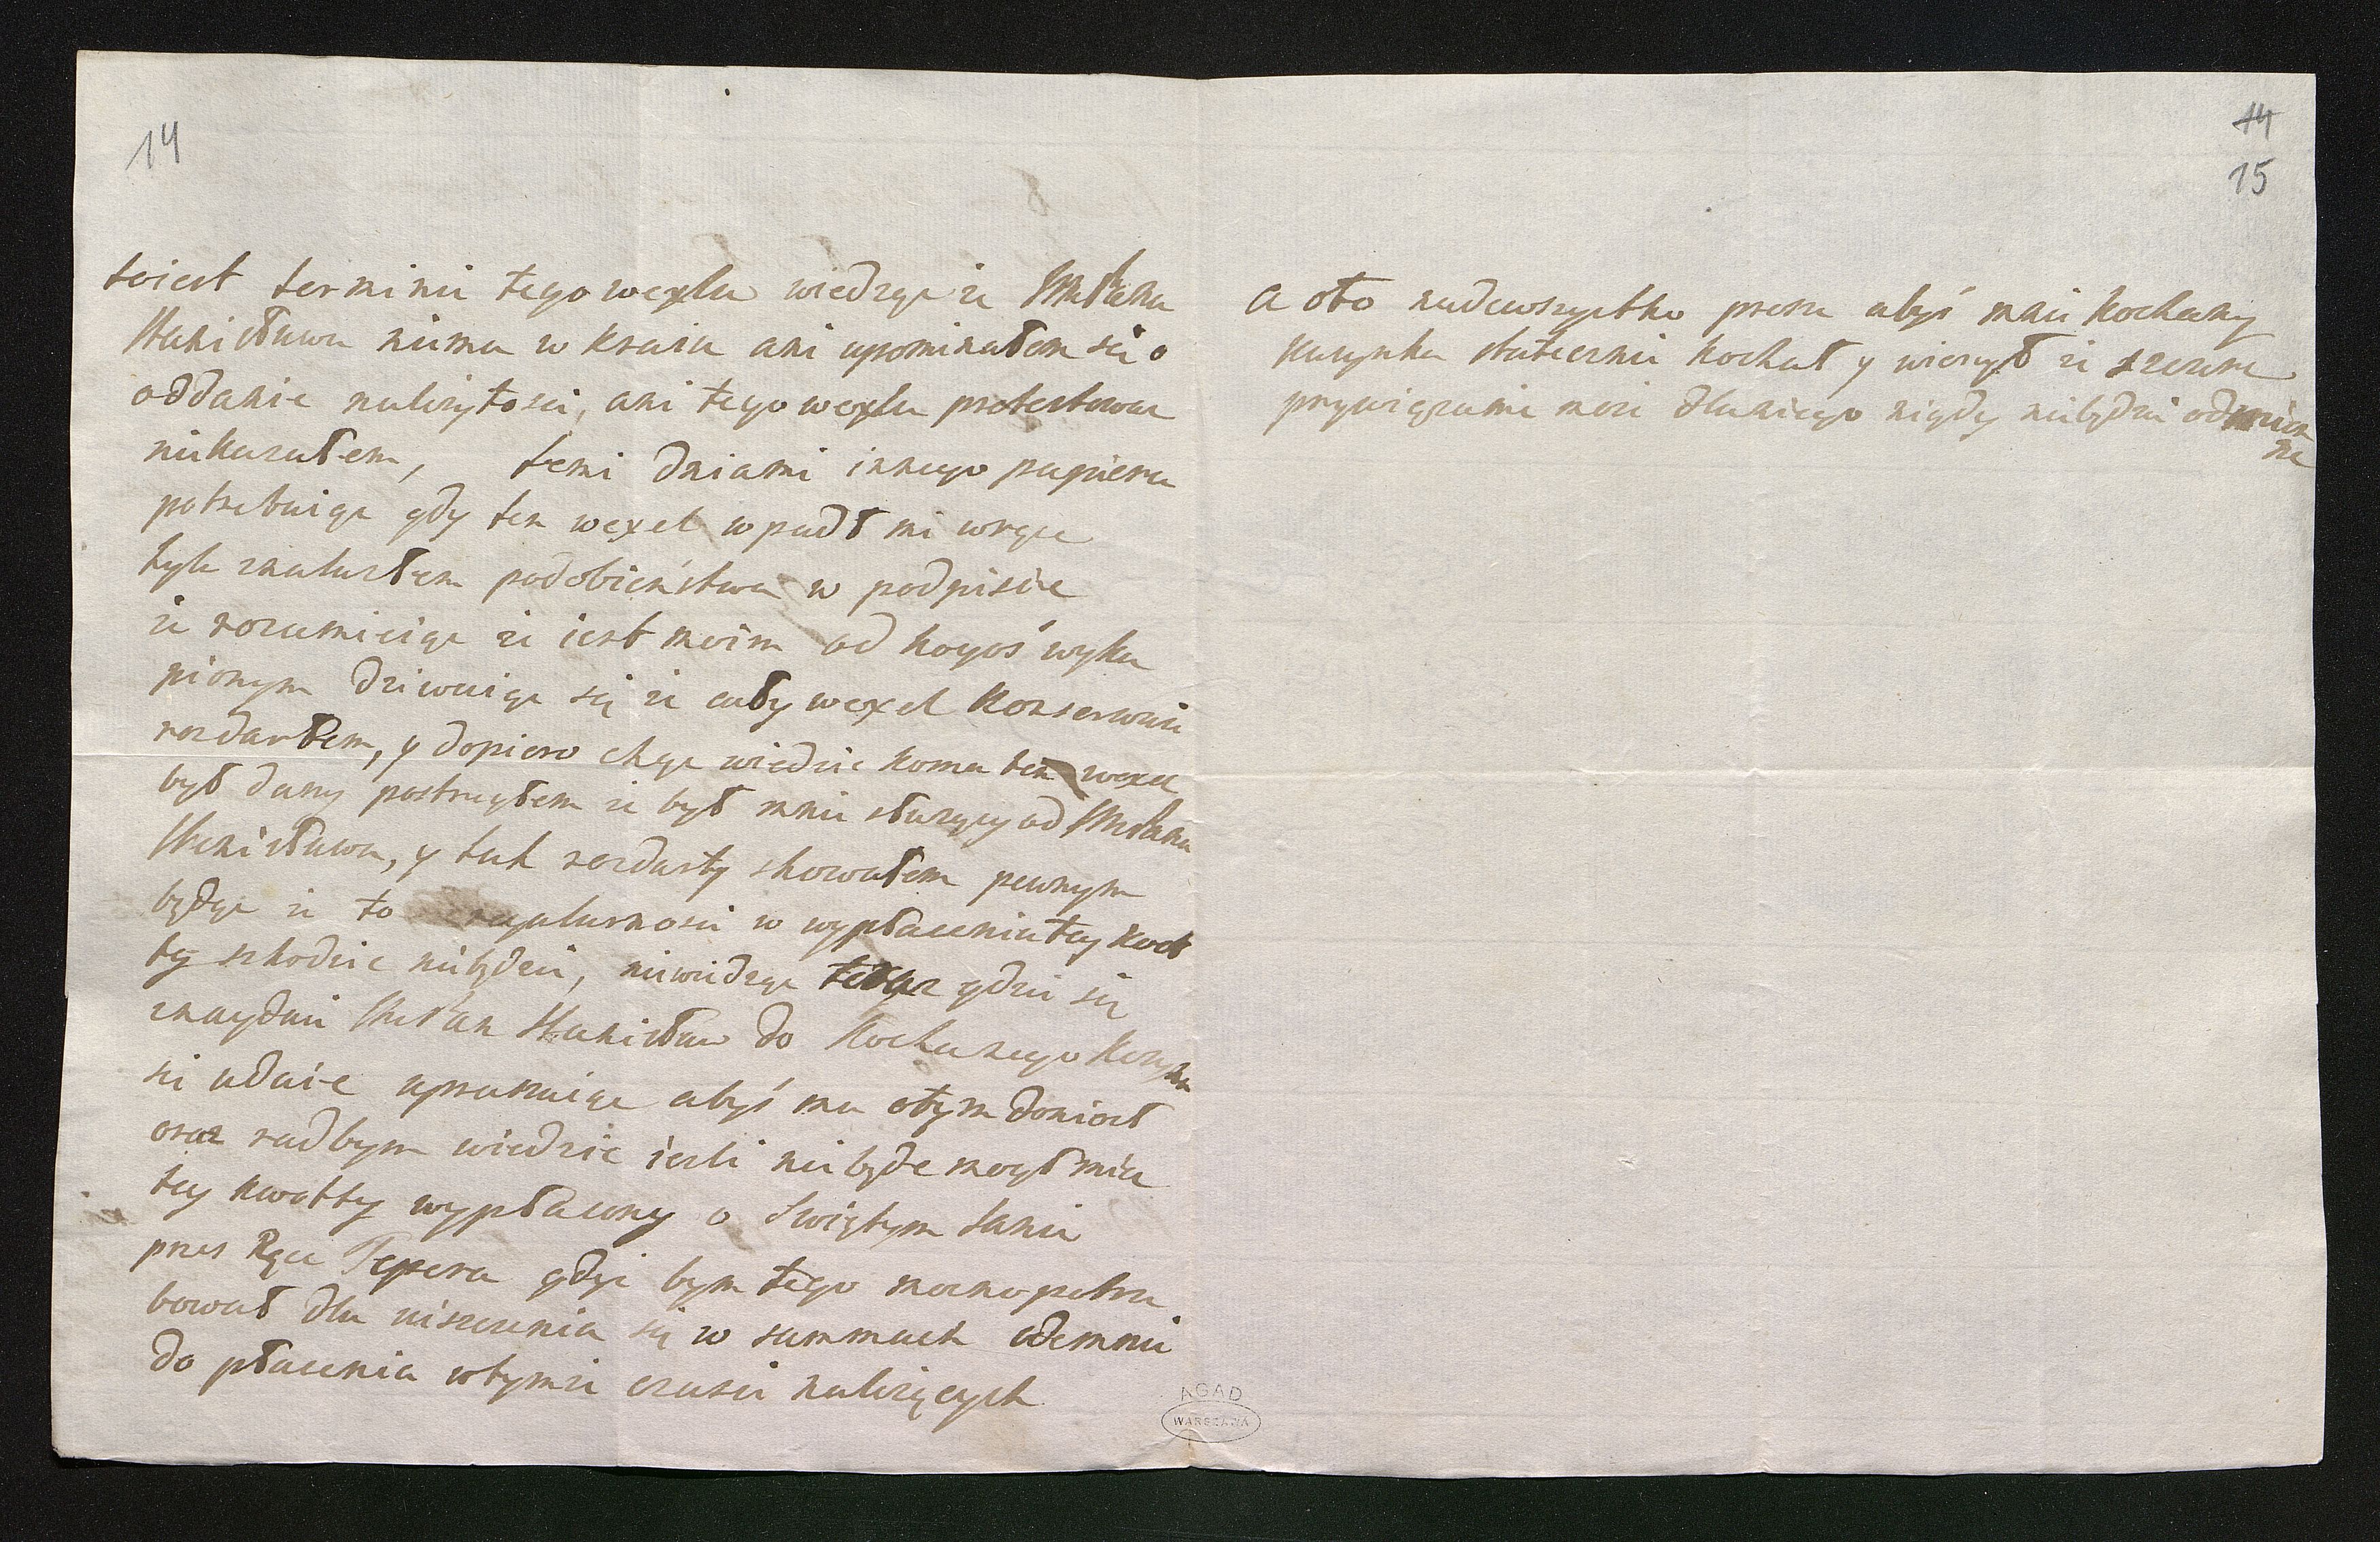 14
toiest terminu tego wexlu wiedząc ze JMcPana
Stanisława niema w kraiu ani upominałem się o
oddanie należytości, ani tego wexlu protestować
niekazałem, temi dniami innego papieru
potrzebuiąc gdy ten wexel wpadł mi wręce
tyle znalazłem podobieństwa w podpisie
ze rozumieiąc ze iest moim od kogoś wyku
pionym dziwuiąc się ze cały wexel konserwuie
rozdarłem, y dopiero chcąc wiedzie komu ten wexel
był dany postrzegłem ze był mnie służący od JMcPana
Stanisława, y tak rozdarty schowałem pewnym
będąc ze to regularnosci w wypłaceniu tey kwot
ty szkodzic niebędzie, niewiedząc teraz gdzie się
znayduie JMcPan Stanisław do kochanego kuzynka
się udaie upraszaiąc abyś mu otym doniosł
oraz radbym wiedzie iesli niebęde mogł miec
tey kwotty wypłaconey o Swiętym Janie
przez Ręce Tepera gdyż bym tego mocno potrze
bował dla uiszczenia się w summach odemnie
do płacenia wtymze czasie należących
14
15
a oto nadewszystko prosze abyś mnie kochany
kuzynku statecznie kochał y wierzył ze szczere
przywiązanie moie dlaniego nigdy niebędzie odmien
ne
AGAD
WARSZAWA